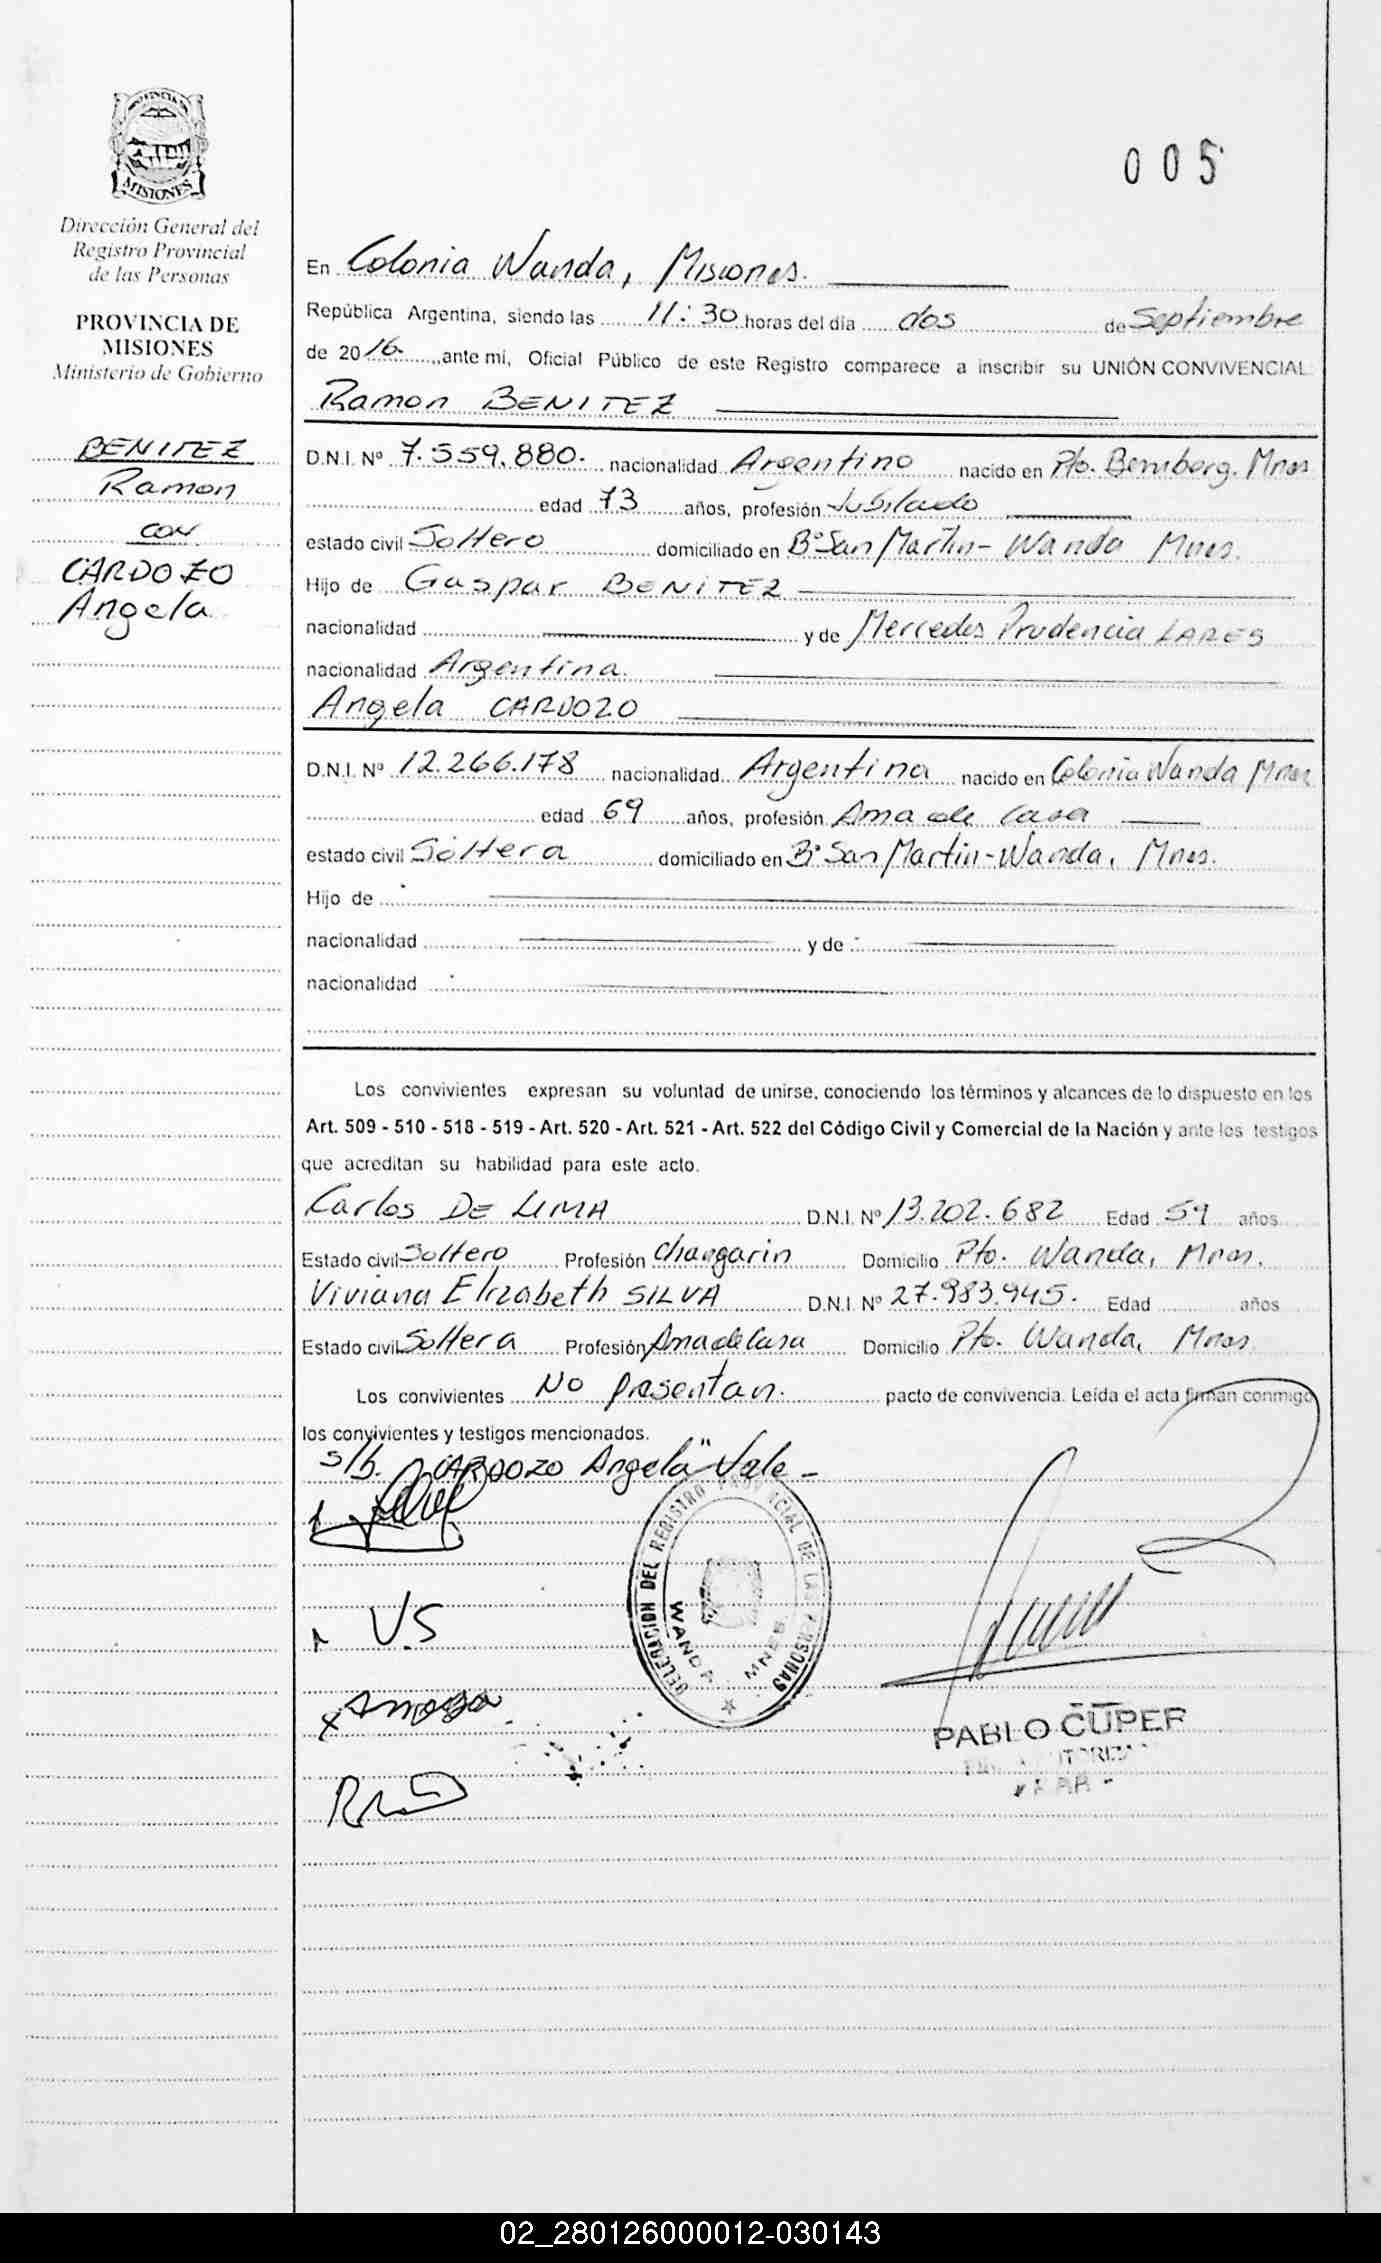 PROVINCIA DE
MISIONES
Dirección General del
Registro Provincial
de las Personas
PROVINCIA DE
MISIONES
Ministerio de Gobierno
BENITEZ
Ramon
con
CARDOZO
Angela
005
En Colonia Wanda, Misiones.
República Argentina, siendo las 11:30 horas del día dos de Septiembre
de 2016 ante mi, Oficial Público de este Registro comparece a inscribir su UNIÓN CONVIVENCIAL
Ramon BENITEZ
D.N.I. Nº 7.559.880. nacionalidad Argentino nacido en Pto. Bemberg. Mnes
edad 73 años, profesión Jubilado
estado civil Soltero domiciliado en Bº San Martin - Wanda Mnes.
Hijo de Gaspar BENITEZ
nacionalidad y de Mercedes Prudencia LARES
nacionalidad Argentina.
Angela CARDOZO
D.N.I. Nº 12.266.178 nacionalidad Argentina nacido en Colonia Wanda Mnes
edad 69 años, profesión Ama de Casa
estado civil Soltera domiciliado en Bº San Martin - Wanda, Mnes.
Hijo de
nacionalidad y de
nacionalidad
Los convivientes expresan su voluntad de unirse, conociendo los términos y alcances de lo dispuesto en los
Art. 509 - 510 - 518 - 519 - Art. 520 - Art. 521 - Art. 522 del Código Civil y Comercial de la Nación y ante los testigos
que acreditan su habilidad para este acto.
Carlos DE LIMA D.N.I. Nº 13.202.682 Edad 59 años
Estado civil Soltero Profesión Changarin Domicilio Pto. Wanda, Mnes.
Viviana Elizabeth SILVA D.N.I. Nº 27.983.945. Edad años
Estado civil Soltera Profesión Ama de Casa Domicilio Pto. Wanda, Mnes
Los convivientes No presentan. pacto de convivencia. Leída el acta firman conmigo
los convivientes y testigos mencionados.
s/b. CARDOZO Angela" Vale -
V.S
DELEGACION DEL REGISTRO PROVINCIAL DE LAS PERSONAS
WANDA MNES.
PABLO CUPER
02_280126000012-030143